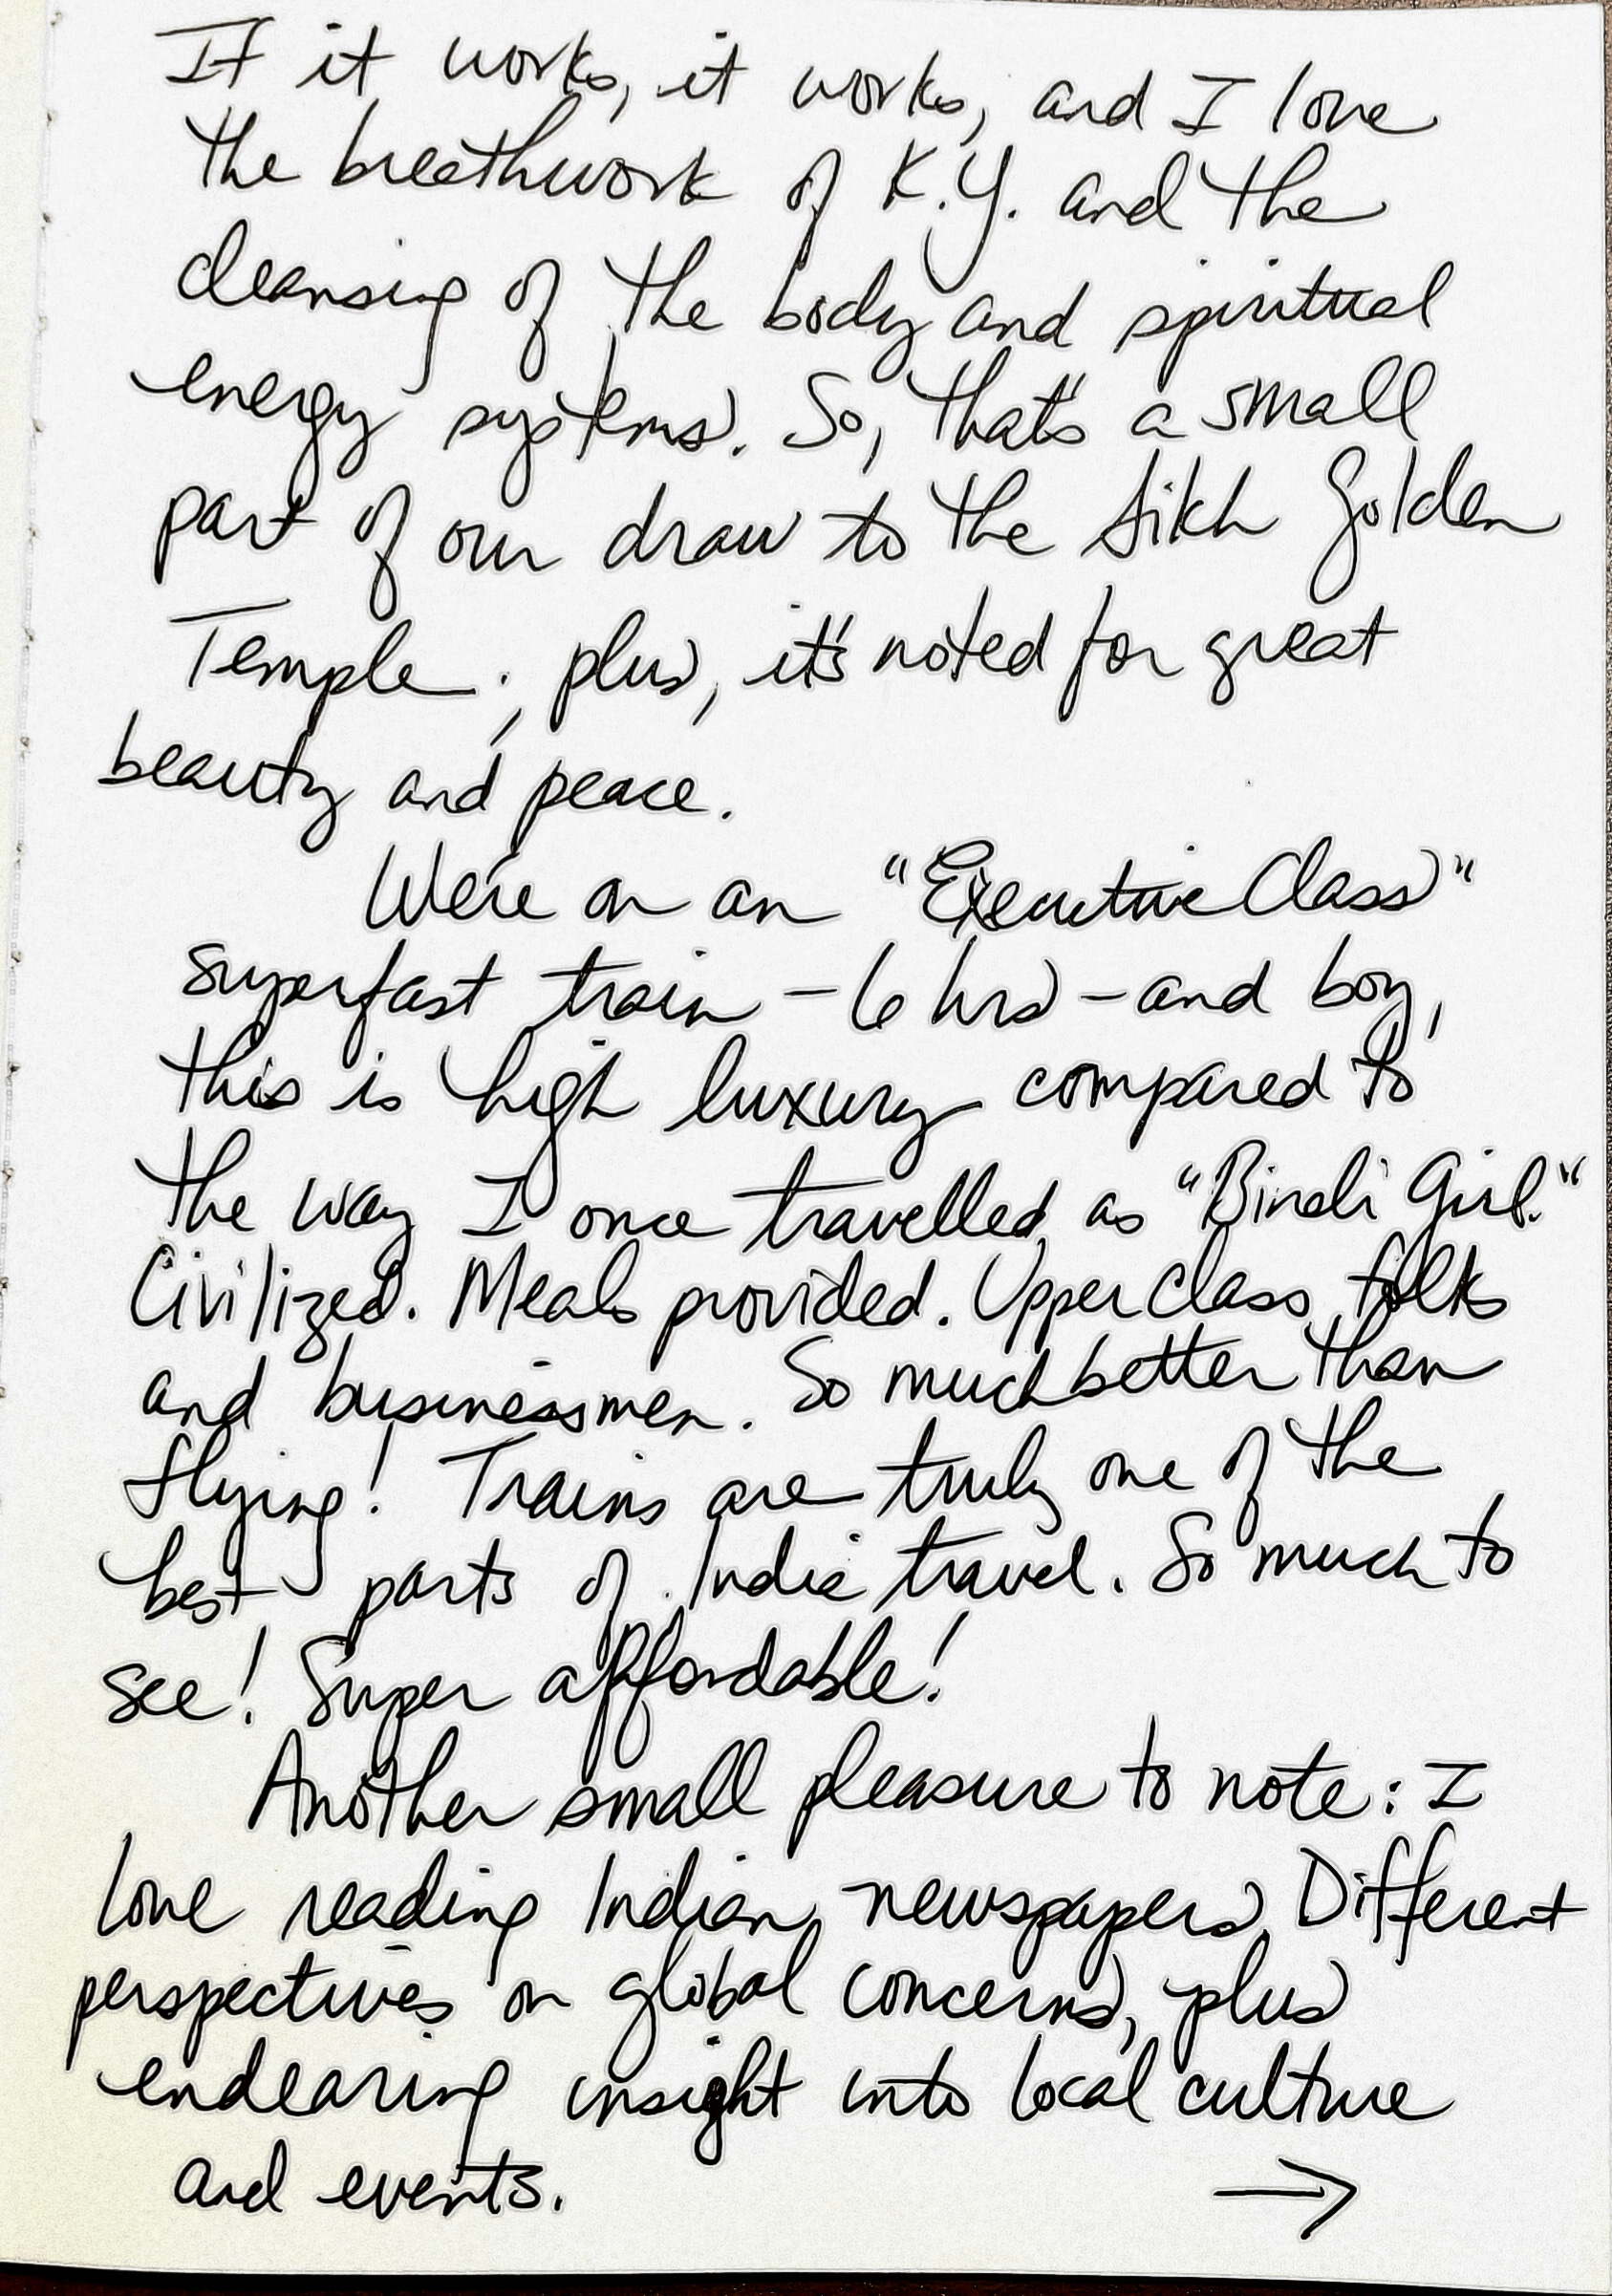 If it works, it works, and I love
the breathwork of K.Y. and the
cleansing of the body and spiritual
energy systems. So, that's a small
part of our draw to the Sikh Golden
Temple; plus, it's noted for great
beauty and peace.
We're on an "Executive Class"
superfast train - 6 hrs - and boy,
this is high luxury compared to
the way I once travelled as "Bindi Girl."
Civilized. Meals provided. Upper class folks
and businessmen. So much better than
flying! Trains are truly one of the
best parts of India travel. So much to
see! Super affordable!
Another small pleasure to note: I
love reading Indian newspapers. Different
perspectives on global concerns, plus
endearing insight into local culture
and events. →